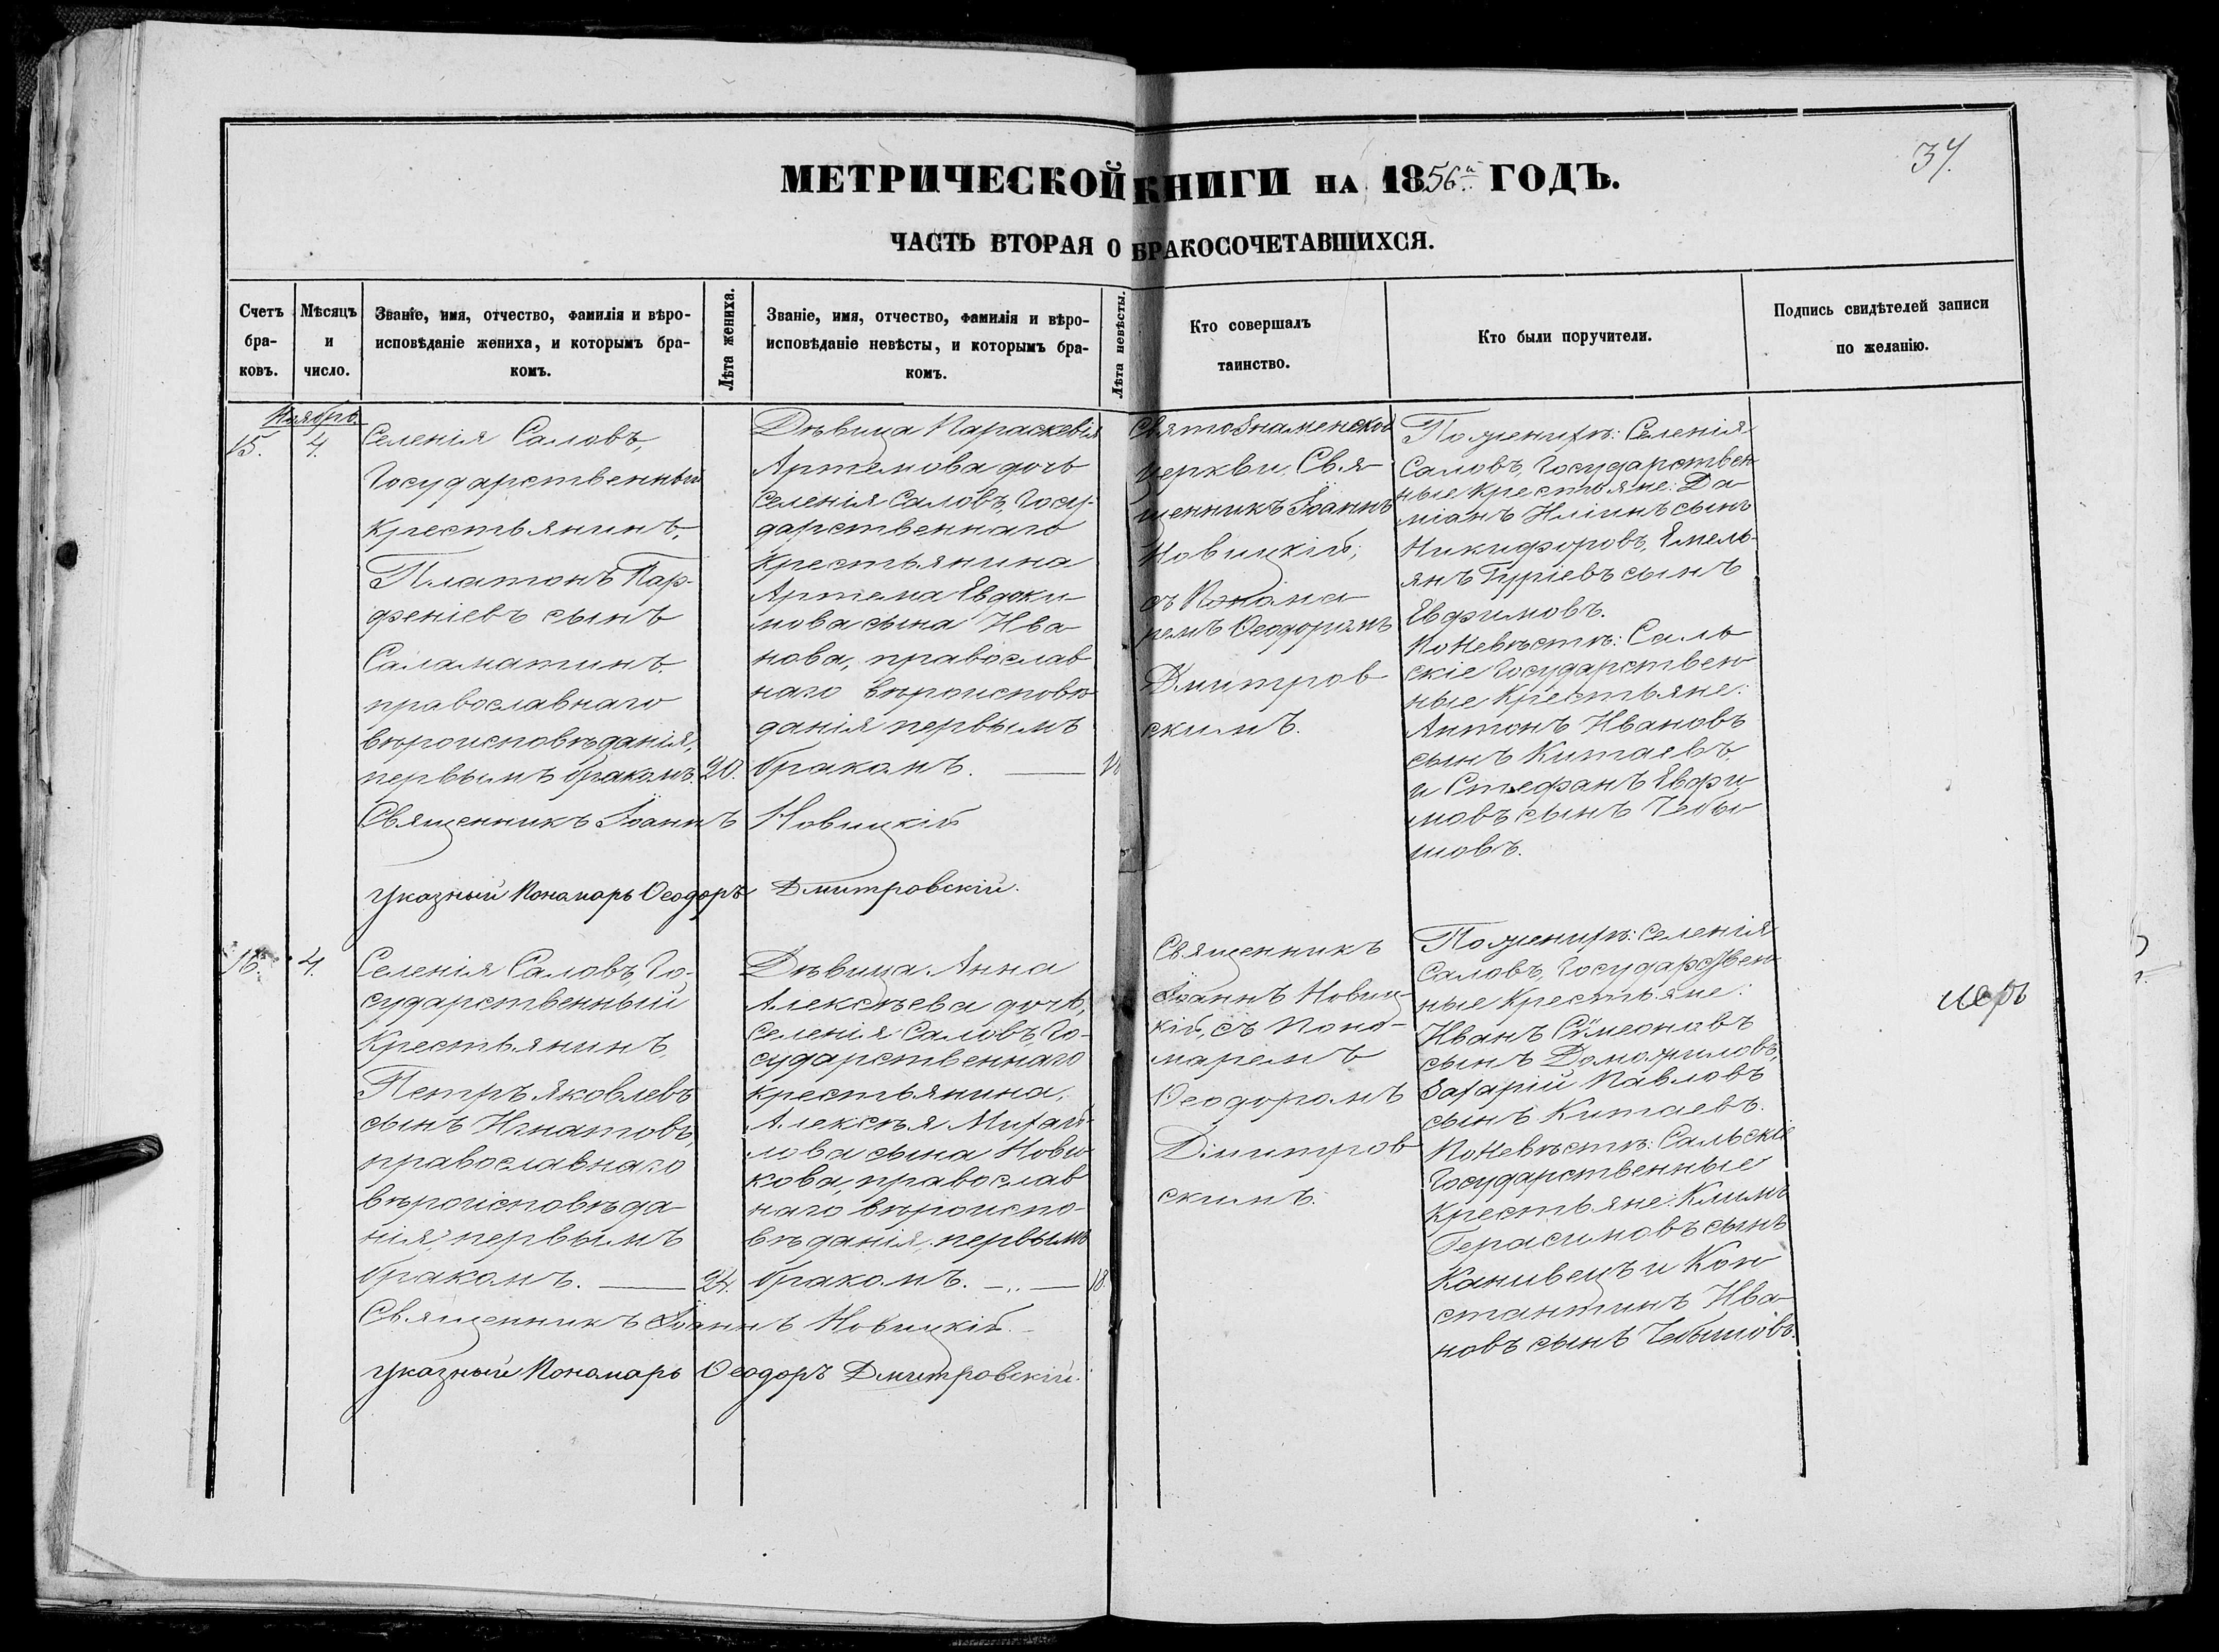 34.
МЕТРИЧЕСКОЙ КНИГИ НА 1856й ГОДЪ.
ЧАСТЬ ВТОРАЯ О БРАКОСОЧЕТАВШИХСЯ.
Счетъ бра-ковъ.
Мѣсяцъ и число.
Званіе, имя, отчество, фамилія и вѣро-
исповѣданіе жениха, и которымъ бра-
комъ.
Лѣта жениха.
Званіе, имя, отчество, фамилія и вѣро-
исповѣданіе невѣсты, и которымъ бра-
комъ.
Лѣта невѣсты.
Кто совершалъ
таинство.
Кто были поручители.
Подпись свидѣтелей записи
по желанію.
Ноябрь.
15. 4.
Селенія Саловъ,
Государственный
Крестьянинъ,
Платонъ Пар-
феніевъ сынъ
Саламатинъ
православнаго
вѣроисповѣданія,
первымъ бракомъ. 20.
Дѣвица Параскевія
Артемова дочь
Селенія Саловъ, Госу-
дарственнаго
Крестьянина
Артема Евдоки-
мова сына Ива
нова, православ
наго вѣроисповѣ
данія первымъ
бракомъ.
СвятоЗнаменской
церкви, Свя-
щенникъ Іоаннъ
Новицкій,
съ Понома
ремъ Ѳеодоромъ
Дмитров
скимъ.
По женихѣ: Селенія
Саловъ, Государствен
ные Крестьяне: Да-
міанъ Иліинъ сынъ
Никифоровъ, Емель-
янъ Гуріевъ сынъ
Евфимовъ.
По Невѣстѣ: Саль
скіе Государствен
ные Крестьяне:
Антонъ Ивановъ
сынъ Китаевъ
и Стефанъ Евфи
мовъ сынъ Чебы
шовъ.
Священникъ Іоаннъ Новицкій
Указный Пономарь Ѳеодоръ Дмитровскій.
16. 4.
Селенія Саловъ, Го-
сударственный
Крестьянинъ,
Петръ Яковлевъ
сынъ Игнатовъ,
православнаго
вѣроисповѣда
нія, первымъ
бракомъ. 24.
Дѣвица Анна
Алексѣева дочь,
Селенія Саловъ, Го-
сударственнаго
крестьянина,
Алексѣя Михай-
лова сына Нови
кова, православ
наго вѣроиспо-
вѣданія, первымъ
бракомъ. 18
Священникъ
Іоаннъ Новиц-
кій, съ Поно-
маремъ
Ѳеодоромъ
Дмитров
скимъ.
По женихѣ: Селенія
Саловъ, Государствен
ные Крестьяне:
Иванъ Сѵмеоновъ
сынъ Доможиловъ,
Захарій Павловъ
сынъ Китаевъ.
По Невѣстѣ: Сальскіе
Государственные
Крестьяне: Климъ
Герасимовъ сынъ
Канивецъ и Кон
стантинъ Ива
новъ сынъ Чебышовъ.
Священникъ Іоаннъ Новицкій.
Указный Пономарь Ѳеодоръ Дмитровскій.